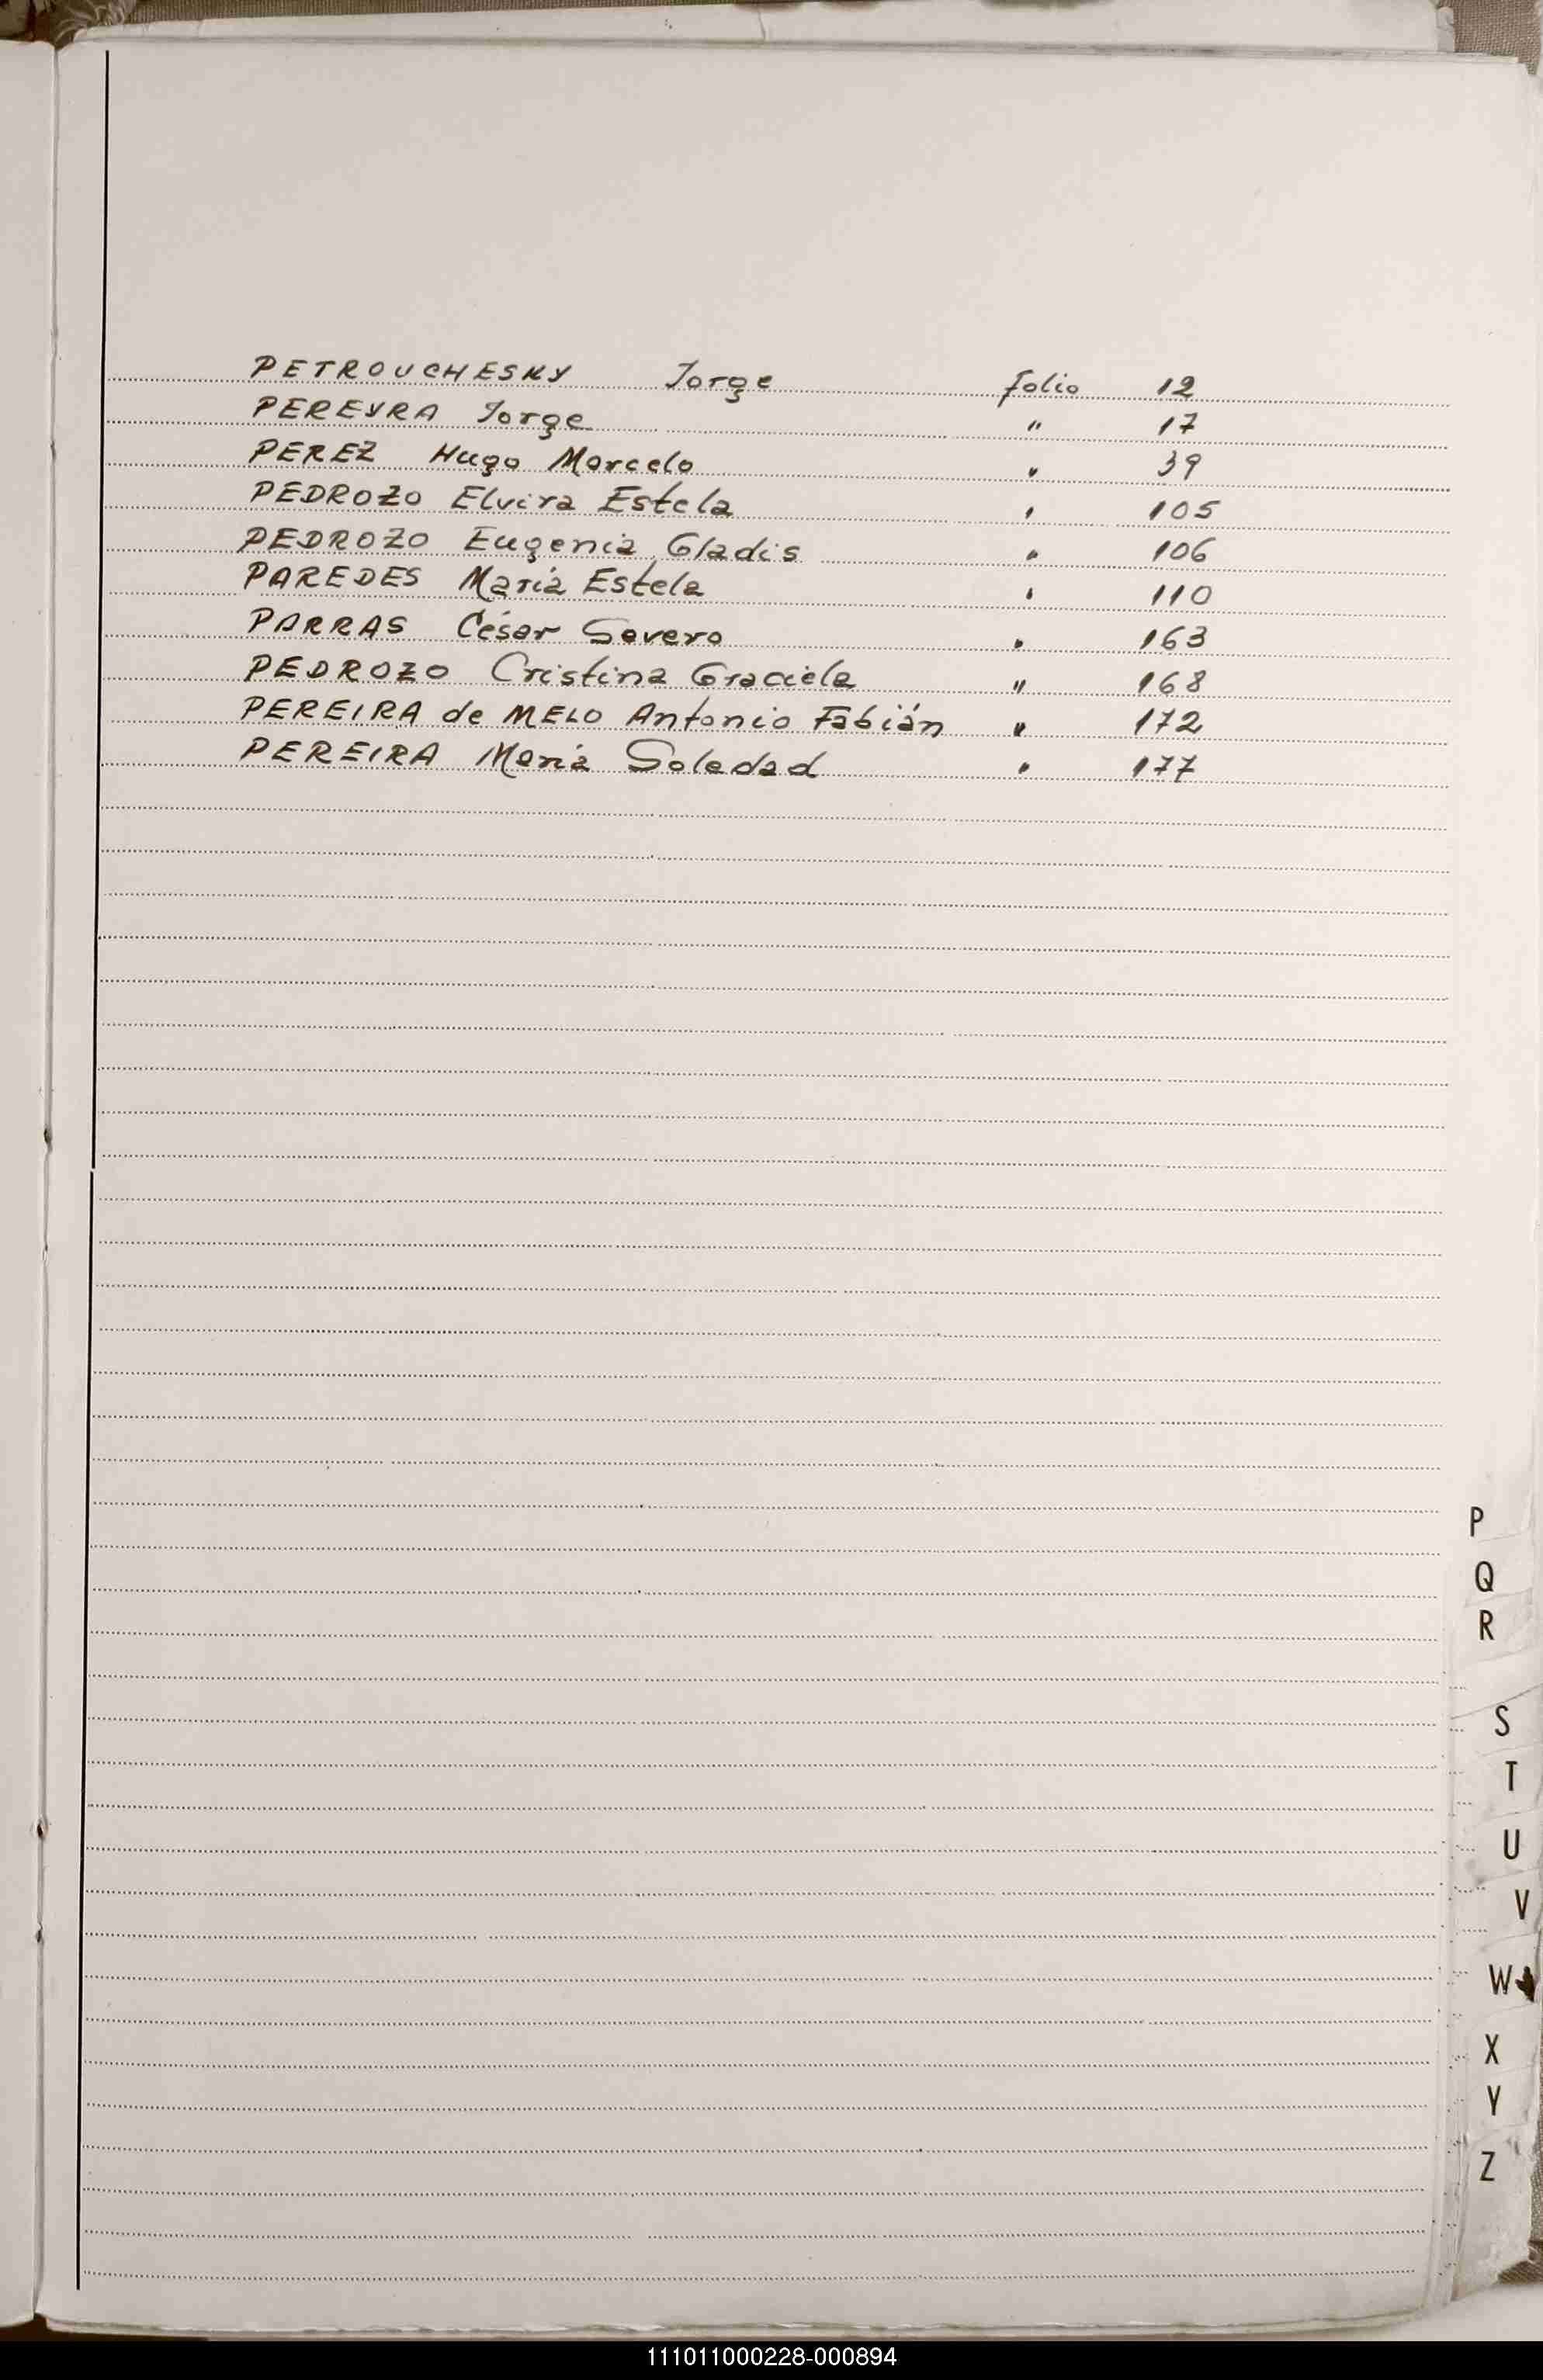 PETROUCHESKY Jorge folio 12
PEREYRA Jorge " 17
PEREZ Hugo Marcelo " 39
PEDROZO Elvira Estela " 105
PEDROZO Eugenia Gladis " 106
PAREDES María Estela " 110
PARRAS César Severo " 163
PEDROZO Cristina Graciela " 168
PEREIRA de MELO Antonio Fabián " 172
PEREIRA María Soledad " 177
P
Q
R
S
T
U
V
W
X
Y
Z
111011000228-000894